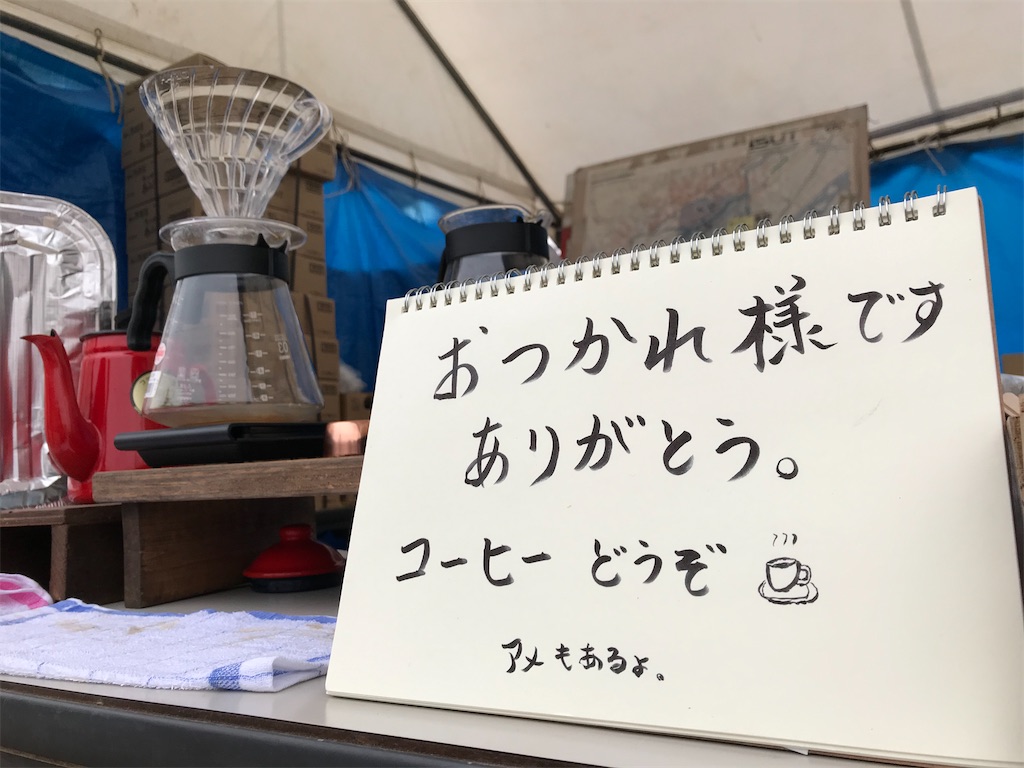 おつかれ様です
ありがとう。
コーヒー どうぞ
アメもあるよ。